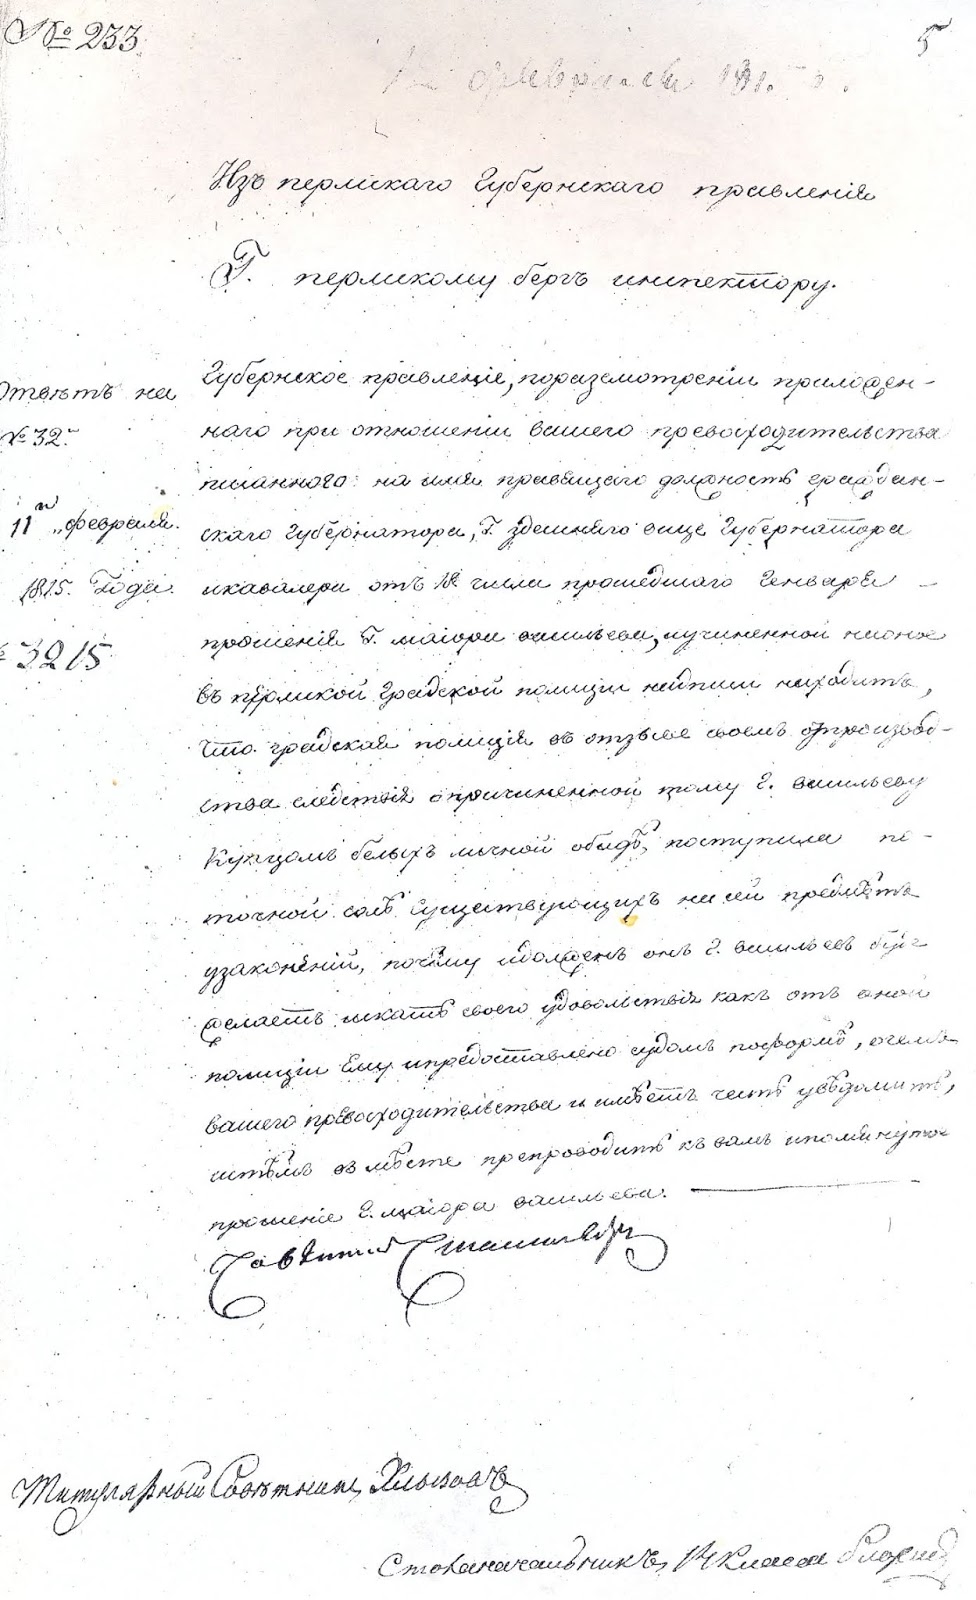 № 233
5
12 февраля 1815 г.
Изъ пермскаго Губернскаго правленія
Г. пермскому бергъ инспектору.
Отвѣтъ на
№ 32.
11 февраля
1815. Года.
№ 3215
Губернское правленіе, поразсмотреніи приложен-
наго при отношеніи вашего превосходительства
писаннаго на имя правящаго должность граждан-
скаго Губернатора, Г. здешняго вице Губернатора
икавалера отъ 18 числа прошедшаго Генваря
прошенія Г. маіора васильева, иучиненной наоное
въ пермской градской полиціи надписи находитъ,
Что градская полиція въ отзыве своемъ опроизвод-
ства следствія опричиненной тому г. васильеву
Купцомъ белыхъ личной обидѣ, поступила по
точной силѣ Существующихъ на сей предмѣтъ
узаконеній, почему идолженъ онъ г. васильевъ буде
желаетъ искать своего удовольствія какъ отъ оной
полиціи Ему ипредоставлено судомъ поформѣ, очемъ
вашего превосходительства и имѣетъ честь увѣдомить,
истѣмъ вмѣсте препроводить къ вамъ ипомянутое
прошеніе Г. маіора васильева.
Совѣтник
Титулярный Совѣтник
Столоначальникъ 14 класса